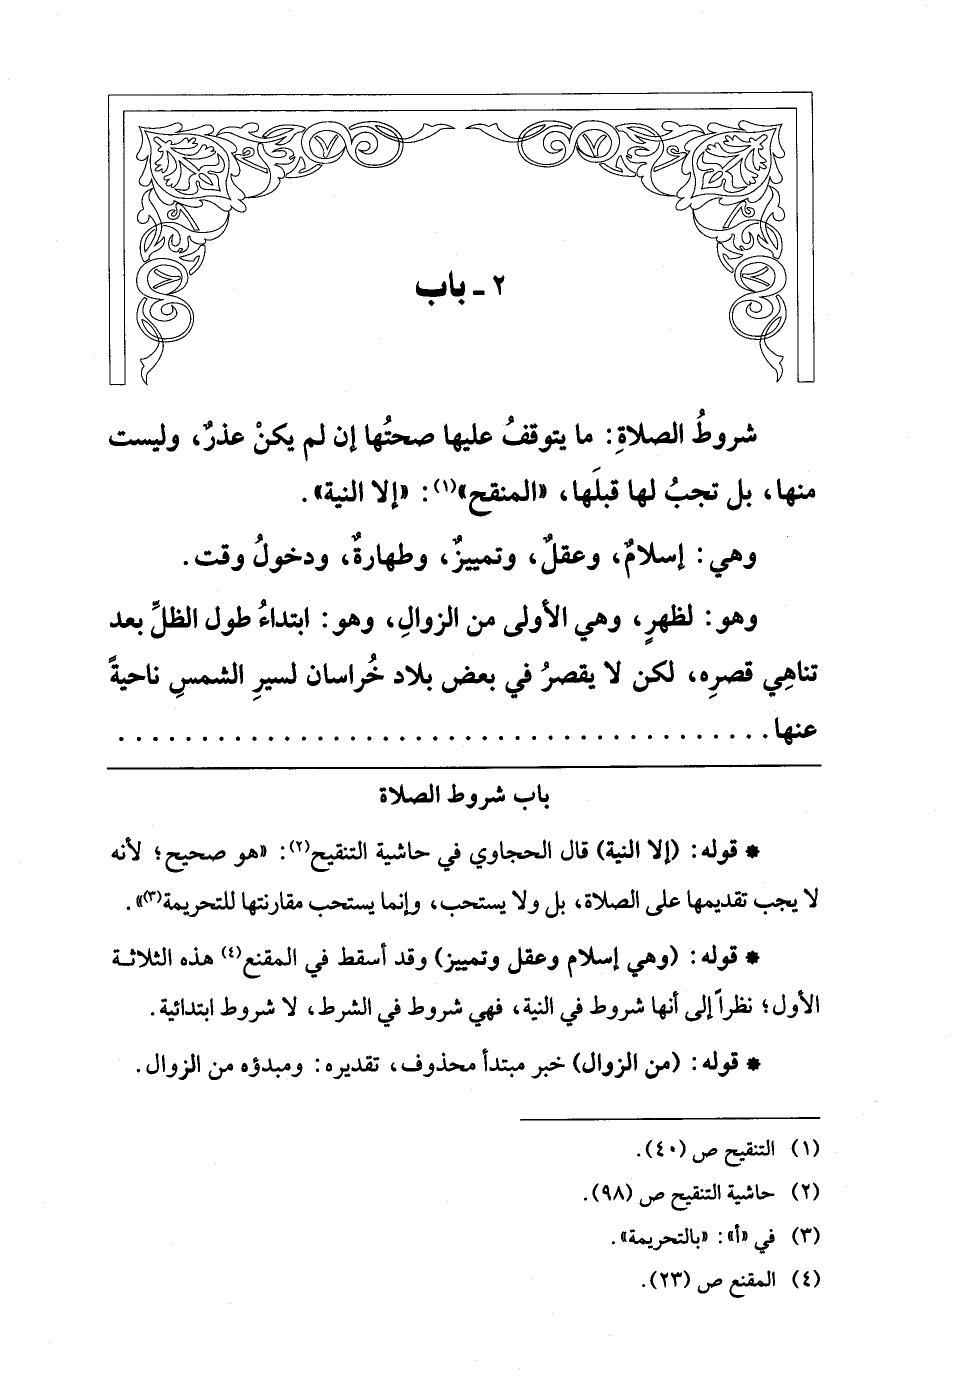 ٢ ـ باب
شروطُ الصلاةِ: ما يتوقفُ عليها صحتُها إن لم يكنْ عذرٌ، وليست
منها، بل تجبُ لها قبلَها، «المنقح»(١): «إلا النية».
وهي: إسلامٌ، وعقلٌ، وتمييزٌ، وطهارةٌ، ودخولُ وقت.
وهو: لظهرٍ، وهي الأولى من الزوالِ، وهو: ابتداءُ طول الظلِّ بعد
تناهِي قصرِه، لكن لا يقصرُ في بعض بلاد خُراسان لسيرِ الشمسِ ناحيةً
عنها . . . . . . . . . . . . . . . . . . . . . . . . . . . . . . . . . . . . . . . .
باب شروط الصلاة
* قوله: (إلا النية) قال الحجاوي في حاشية التنقيح(٢): «هو صحيح؛ لأنه
لا يجب تقديمها على الصلاة، بل ولا يستحب، وإنما يستحب مقارنتها للتحريمة(٣)».
* قوله: (وهي إسلام وعقل وتمييز) وقد أسقط في المقنع(٤) هذه الثلاثة
الأول؛ نظراً إلى أنها شروط في النية، فهي شروط في الشرط، لا شروط ابتدائية.
* قوله: (من الزوال) خبر مبتدأ محذوف، تقديره: ومبدؤه من الزوال.
(١) التنقيح ص (٤٠).
(٢) حاشية التنقيح ص (٩٨).
(٣) في «أ»: «بالتحريمة».
(٤) المقنع ص (٢٣).